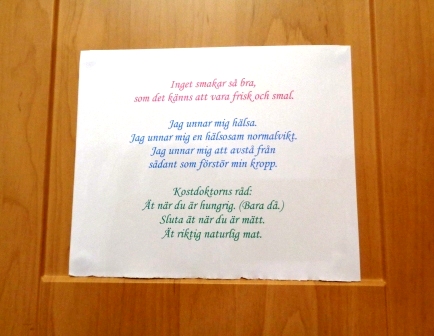 Inget smakar så bra,
som det känns att vara frisk och smal.
Jag unnar mig hälsa.
Jag unnar mig en hälsosam normalvikt.
Jag unnar mig att avstå från
sådant som förstör min kropp.
Kostdoktorns råd:
Ät när du är hungrig. (Bara då.)
Sluta ät när du är mätt.
Ät riktig naturlig mat.